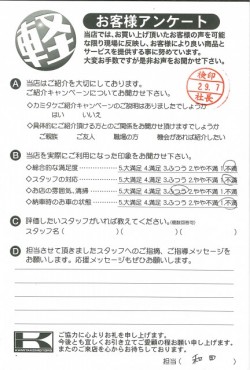 軽
お客様アンケート
当店では、お買い上げ頂いたお客様の声を可能な限り現場に反映し、お客様により良い商品とサービスを提供する事に努めています。
大変お手数ですが是非お声をお聞かせ下さい。
A 当店はご紹介を大切にしております。
ご紹介キャンペーンについてお聞かせ下さい。
検印
29.7
社長
◇カミタケご紹介キャンペーンのご説明はありましたでしょうか
はい いいえ
◇具体的にご紹介頂ける方とのご関係をお聞かせ下さいませんでしょうか?
ご親族 ご友人 職場の方 機会があれば紹介したい
B 当店を実際にご利用になった印象をお聞かせ下さい。
◇総合的な満足度 5.大満足 4.満足 3.ふつう 2.やや不満 1.不満
◇スタッフの対応 5.大満足 4.満足 3.ふつう 2.やや不満 1.不満
◇お店の雰囲気、清掃 5.大満足 4.満足 3.ふつう 2.やや不満 1.不満
◇納車時のお車の状態 5.大満足 4.満足 3.ふつう 2.やや不満 1.不満
C 評価したいスタッフがいれば教えてください。(複数回答可)
スタッフ名( )( )( )
D 担当させて頂きましたスタッフへのご指摘、ご指導メッセージをお願いします。応援メッセージもぜひお願いします。
K
ご協力に心よりお礼を申し上げます。
今後とも宜しくお引き立てご愛顧の程お願い申し上げます。
またのご来店を心からお待ちしております。
担当( 和田 )